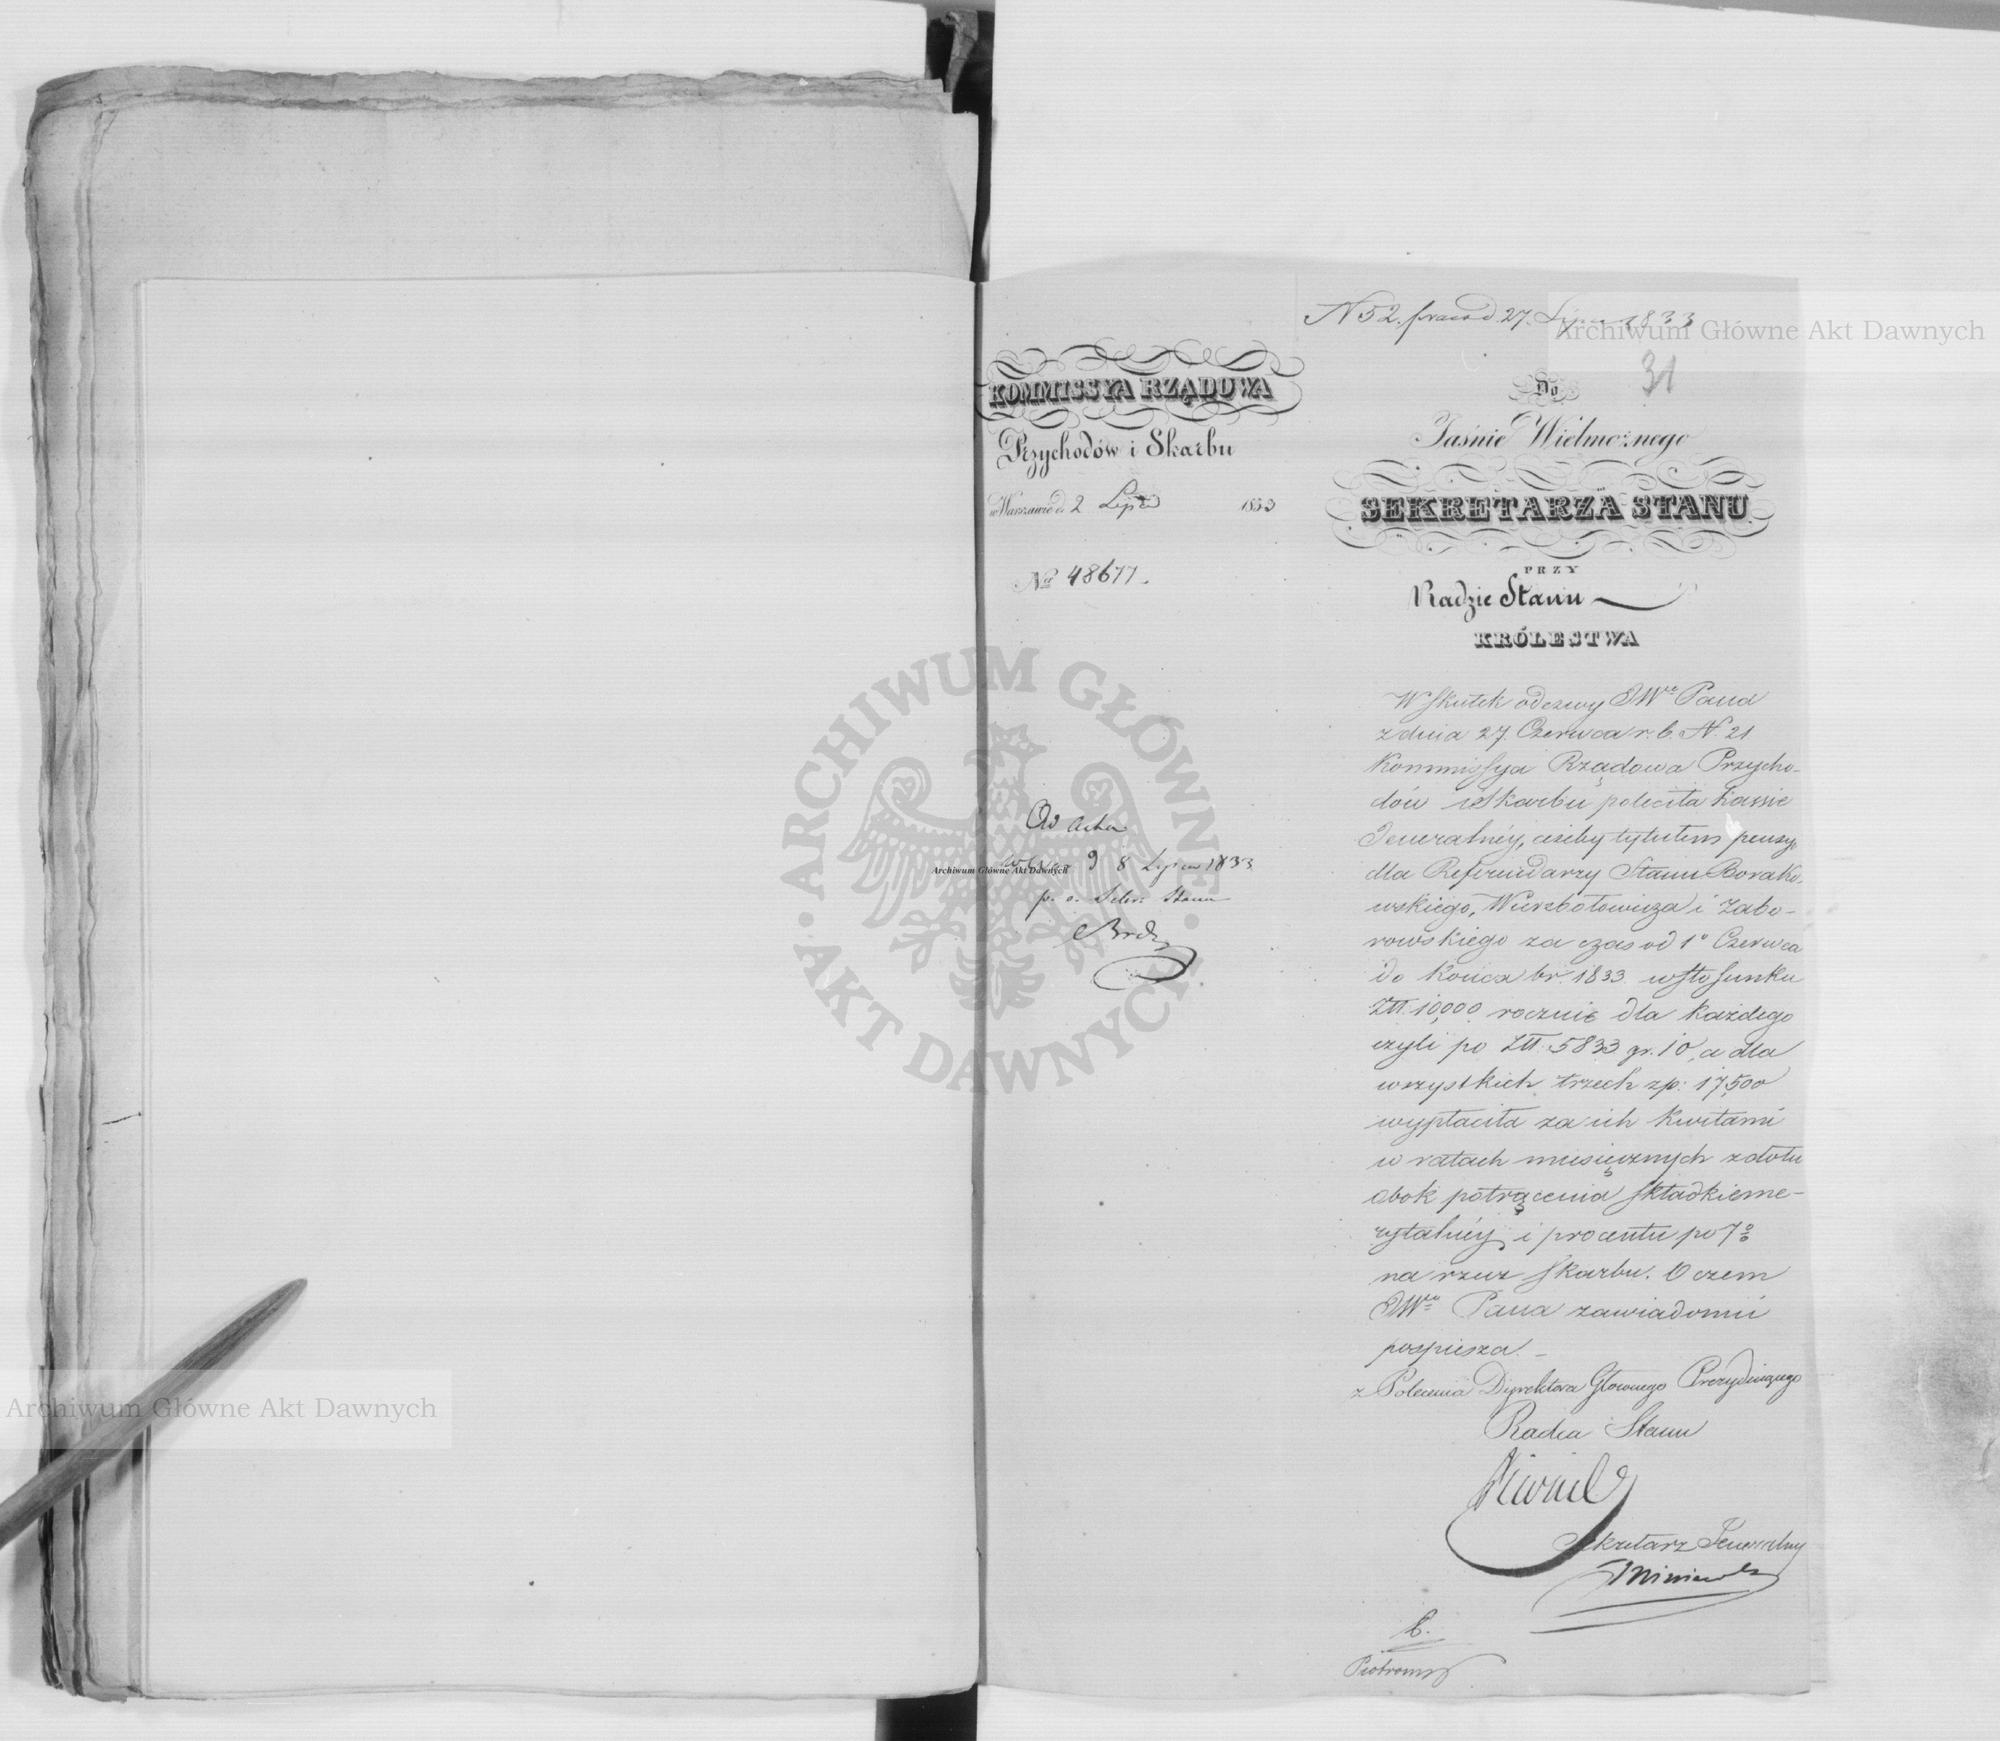 N 52. 27. Lipca 1833
31
KOMMISSYA RZĄDOWA
Przychodów i Skarbu
w Warszawie d. 2 Lipca 1833
Nr 48677.
Do
Jaśnie Wielmożnego
SEKRETARZA STANU
PRZY
Radzie Stanu
KRÓLESTWA
W skutek odezwy JWgo Pana
z dnia 27. Czerwca r. b. N. 21
Kommissya Rządowa Przycho-
dów i Skarbu poleciła Kassie
Jeneralnéy, ażeby tytułem pensyi
dla Referendarzy Stanu Borako-
wskiego, Wierzbołowicza i Zabo-
rowskiego za czas od 1o Czerwca
do końca br. 1833 w stosunku
Złł. 10,000 rocznie dla każdego
czyli po Złł. 5833 gr. 10, a dla
wszystkich trzech zp: 17,500
wypłaciła za ich kwitami
w ratach miesięcznych z dołu
obok potrącenia składki eme-
rytalnéy i procentu po 7%
na rzecz Skarbu. O czem
JWgo Pana zawiadomić
pospiesza. _
z Polecenia Dyrektora Głównego Prezyduiącego
Radca Stanu
Sekretarz Jeneralny
Ad acta
8 Lipca 1833
p. o. Sekr. Stanu
Archiwum Główne Akt Dawnych
Archiwum Główne Akt Dawnych
Archiwum Główne Akt Dawnych
ARCHIWUM GŁÓWNE
AKT DAWNYCH